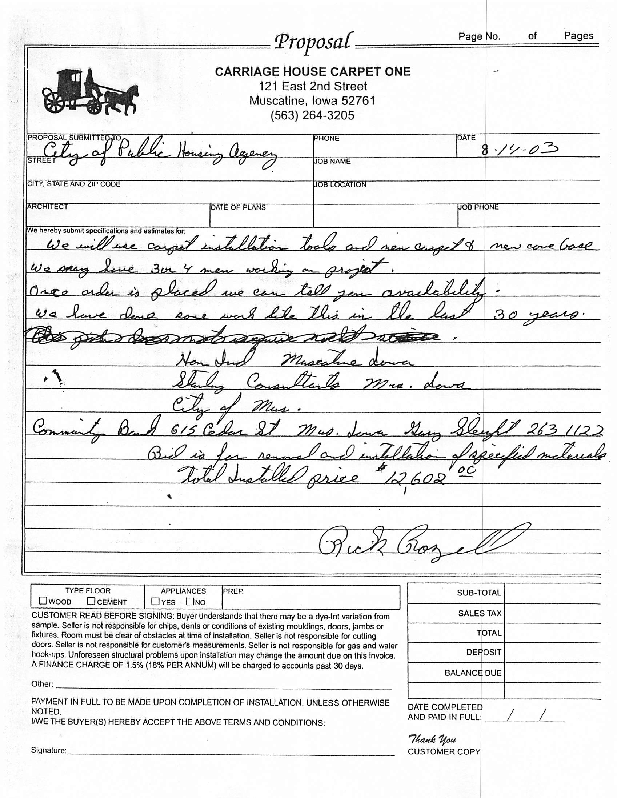 Proposal
Page No. of Pages
CARRIAGE HOUSE CARPET ONE
121 East 2nd Street
Muscatine, Iowa 52761
(563) 264-3205
PROPOSAL SUBMITTED TO PHONE DATE
City of Public Housing Agency 8-14-03
STREET JOB NAME
CITY, STATE AND ZIP CODE JOB LOCATION
ARCHITECT DATE OF PLANS JOB PHONE
We hereby submit specifications and estimates for:
We will use carpet installation tools and new carpet & new cove base
We may have 3 or 4 men working on project.
Once order is placed we can tell you availability.
We have done some work like this in the last 30 years.
Hon Ind Muscatine Iowa
Stanley Consultants Mus. Iowa
City of Mus.
Community Bank 615 Cedar St Mus. Iowa Gary Sleight 263 1122
Bid is for removal and installation of specified materials
Total Installed price $12,602 00
Rick Crozell
TYPE FLOOR APPLIANCES PREP.
WOOD CEMENT YES NO
CUSTOMER READ BEFORE SIGNING: Buyer understands that there may be a dye-lot variation from
sample. Seller is not responsible for chips, dents or conditions of existing mouldings, doors, jambs or
fixtures. Room must be clear of obstacles at time of installation. Seller is not responsible for cutting
doors. Seller is not responsible for customer's measurements. Seller is not responsible for gas and water
hook-ups. Unforessen structural problems upon installation may change the amount due on this invoice.
A FINANCE CHARGE OF 1.5% (18% PER ANNUM) will be charged to accounts past 30 days.
Other:
PAYMENT IN FULL TO BE MADE UPON COMPLETION OF INSTALLATION, UNLESS OTHERWISE
NOTED.
I/WE THE BUYER(S) HEREBY ACCEPT THE ABOVE TERMS AND CONDITIONS:
Signature:
SUB-TOTAL
SALES TAX
TOTAL
DEPOSIT
BALANCE DUE
DATE COMPLETED
AND PAID IN FULL: / /
Thank You
CUSTOMER COPY